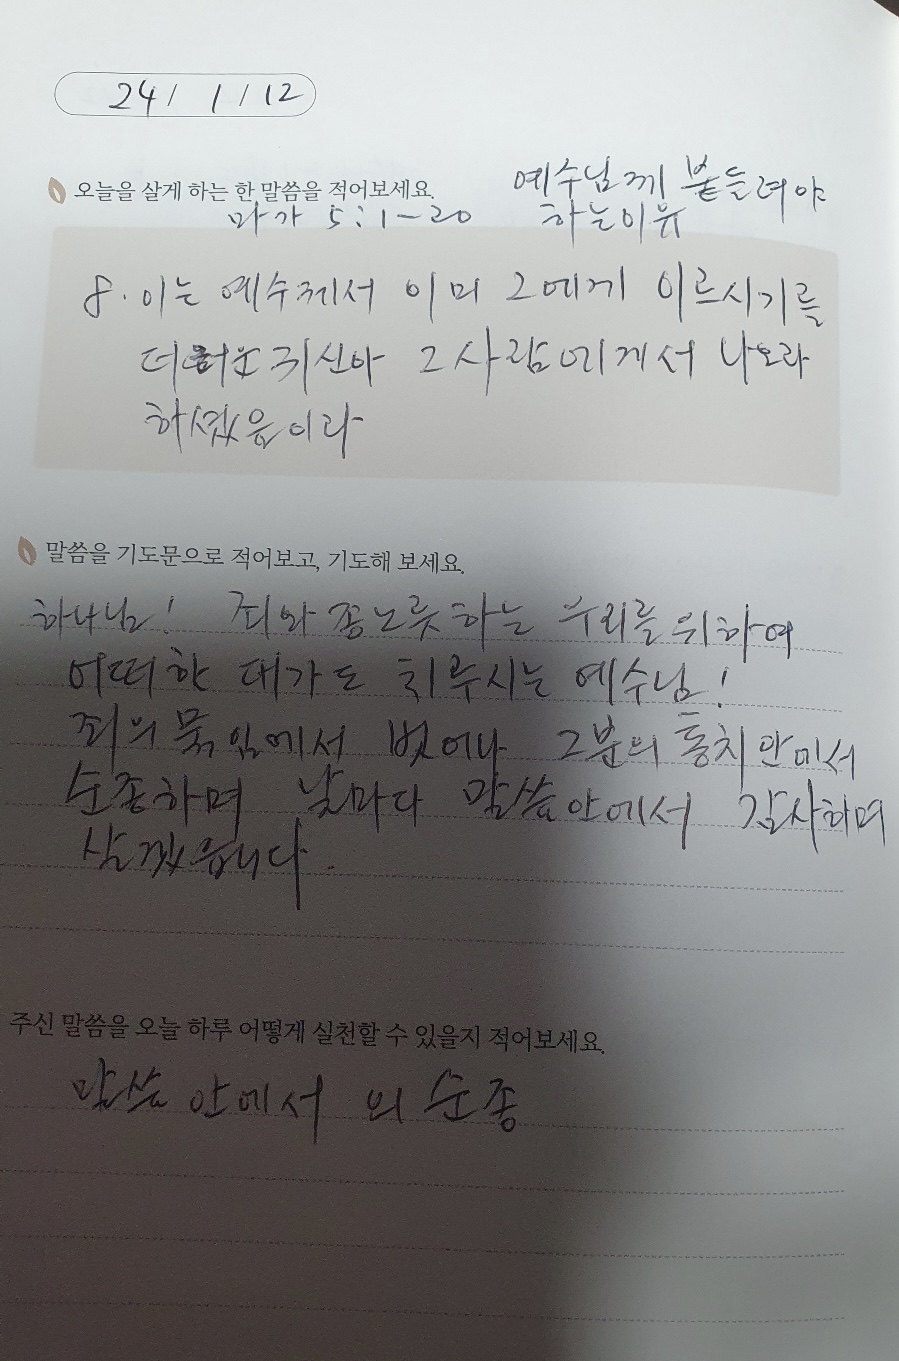 24 / 1 / 12
오늘을 살게 하는 한 말씀을 적어보세요.
마가 5:1-20
예수님께 붙들려야
하는이유
8. 이는 예수께서 이미 그에게 이르시기를
더러운 귀신아 그 사람에게서 나오라
하셨음이라
말씀을 기도문으로 적어보고, 기도해 보세요.
하나님! 죄와 종노릇하는 우리를 위하여
어떠한 대가도 치루시는 예수님!
죄의 묶임에서 벗어나 그분의 통치안에서
순종하며 날마다 말씀안에서 감사하며
살겠습니다.
주신 말씀을 오늘 하루 어떻게 실천할 수 있을지 적어보세요.
말씀 안에서 의 순종